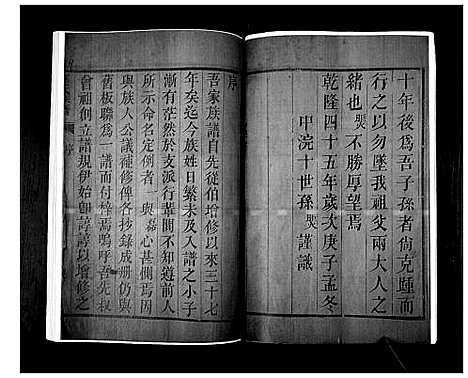 十年後爲吾子孫者尙克踵而
行之以勿墜我祖父兩大人之
緒也煚不勝厚望焉
乾隆四十五年歲次庚子孟冬
甲浣十世孫煚謹識
序
吾家族譜自先從伯增修以來三十七
年矣迄今族姓日繁未及入譜之小子
漸有茫然於支派行輩間不知遵前人
所示命名定例者 與嘉心甚惻焉因
與族人公議補修俾各抄錄成册仍與
舊板聯爲一譜而付梓焉嗚呼吾先叔
曾祖創立譜規伊始卽諄諄以增修之